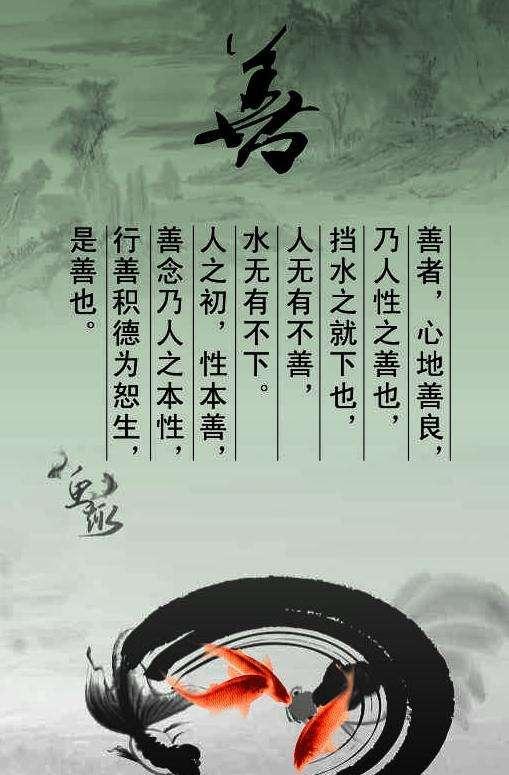 善
善者，心地善良，
乃人性之善也，
挡水之就下也，
人无有不善，
水无有不下。
人之初，性本善，
善念乃人之本性，
行善积德为恕生，
是善也。